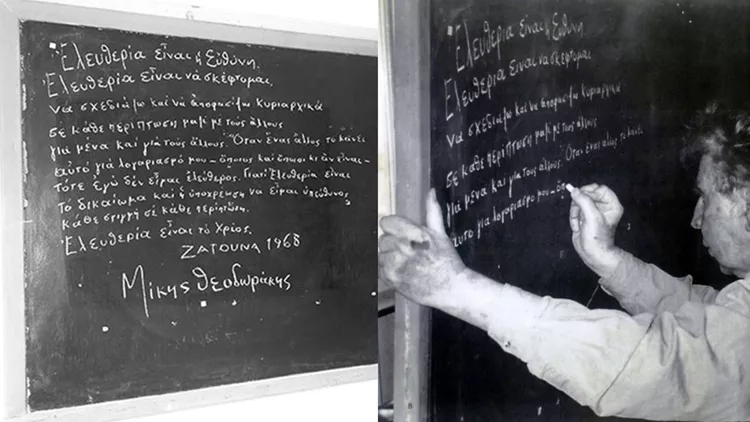 Ἐλευθερία εἶναι ἡ Εὐθύνη.
Ἐλευθερία εἶναι νὰ σκέφτομαι,
νὰ σχεδιάζω καὶ νὰ ἀποφασίζω κυριαρχικὰ
σὲ κάθε περίπτωση μαζὶ μὲ τοὺς ἄλλους
γιὰ μένα καὶ γιὰ τοὺς ἄλλους. Ὅταν ἕνας ἄλλος τὸ κάνει
αὐτὸ γιὰ λογαριασμό μου – ὅποιος καὶ ὅπως κι ἂν εἶναι –
τότε ἐγὼ δὲν εἶμαι ἐλεύθερος. Γιατὶ Ἐλευθερία εἶναι
τὸ δικαίωμα καὶ ἡ ὑποχρέωση νὰ εἶμαι ὑπεύθυνος
κάθε στιγμὴ σὲ κάθε περίπτωση.
Ἐλευθερία εἶναι τὸ Χρέος.
ΖΑΤΟΥΝΑ 1968
Μίκης Θεοδωράκης
Ἐλευθερία εἶναι ἡ Εὐθύνη
Ἐλευθερία εἶναι νὰ σκέφτομαι
νὰ σχεδιάζω καὶ νὰ ἀποφασίζω κυριαρχικὰ
σὲ κάθε περίπτωση μαζὶ μὲ τοὺς ἄλλους
γιὰ μένα καὶ γιὰ τοὺς ἄλλους. Ὅταν ἕνας ἄλλος τὸ κάνει
αὐτὸ γιὰ λογαριασμό μου – ὅπ